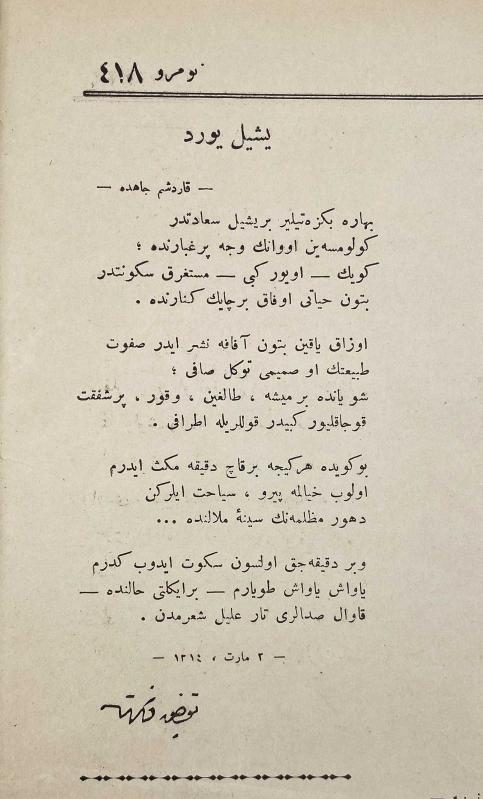 نومرو ٤١٨
يشيل يورد
— قاردشم جاهده —
بهاره بكزه‌تيلير بريشيل سعادتدر
كولومسه‌ين اووانك وجه پرغبارنده ؛
كويك — اويور كبى — مستغرق سكونتدر
بتون حياتى اوفاق برچايك كنارنده .
اوزاق ياقين بتون آفاقه نشر ايدر صفوت
طبيعتك او صميمى توكل صافى ؛
شو يانده بر ميشه ، طالغين ، وقور ، پرشفقت
قوجاقليور كبيدر قوللريله اطرافى .
بوكويده هركيجه برقاچ دقيقه مكث ايدرم
اولوب خيالمه پيرو ، سياحت ايلركن
دهور مظلمه‌نك سينۀ ملالنده ...
وبر دقيقه‌جق اولسون سكوت ايدوب كدرم
ياواش ياواش طويارم — برايكلتى حالنده —
قاوال صدالرى تار عليل شعرمدن .
— ٢ مارت ، ١٣١٤ —
توفيق فكرت